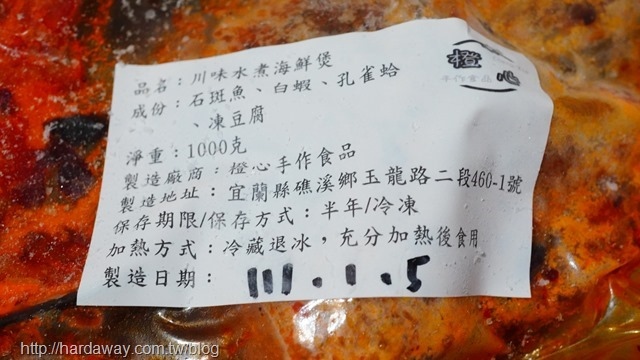 橙心
手作食品
品名：川味水煮海鮮煲
成份：石斑魚、白蝦、孔雀蛤
、凍豆腐
淨重：1000克
製造廠商：橙心手作食品
製造地址：宜蘭縣礁溪鄉玉龍路二段460-1號
保存期限/保存方式：半年/冷凍
加熱方式：冷藏退冰，充分加熱後食用
製造日期：111.1.5
http://hardaway.com.tw/blog